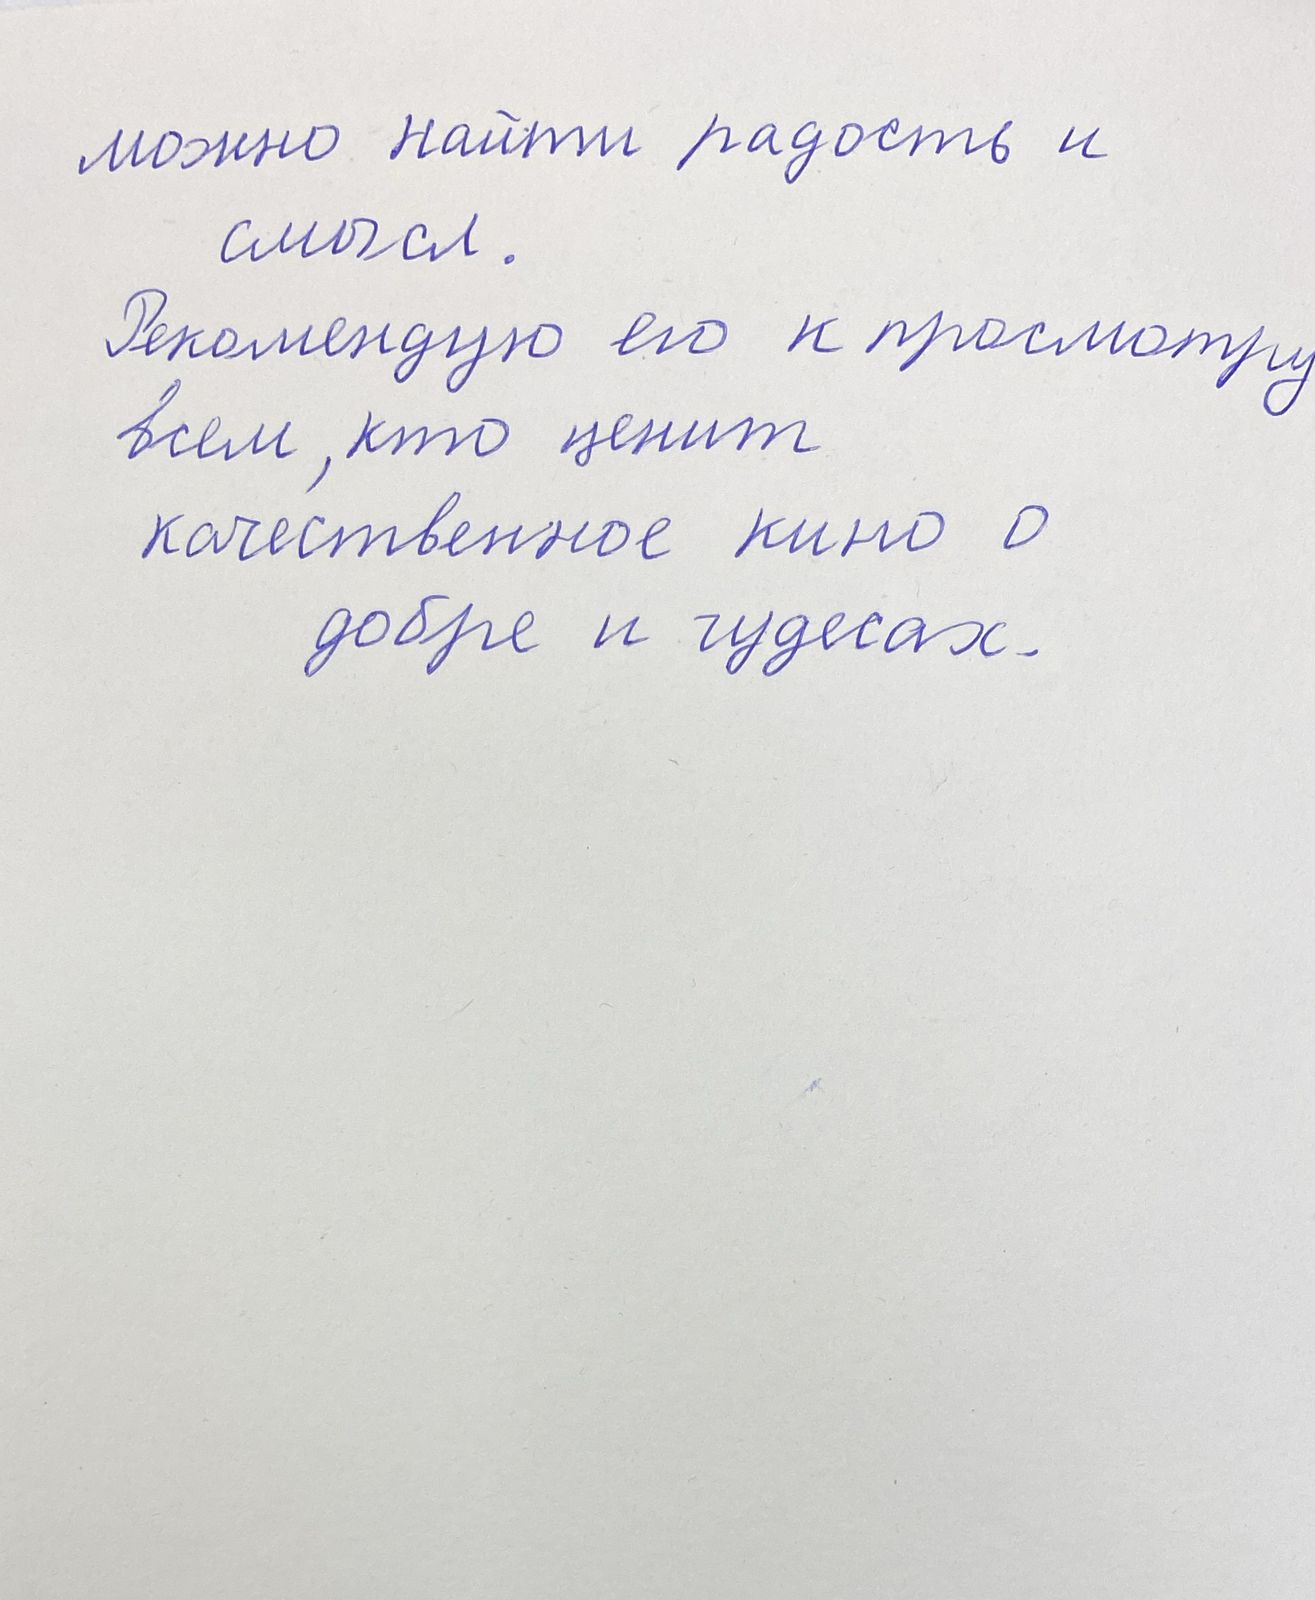 можно найти радость и
смысл.
Рекомендую его к просмотру
всем, кто ценит
качественное кино о
добре и чудесах.